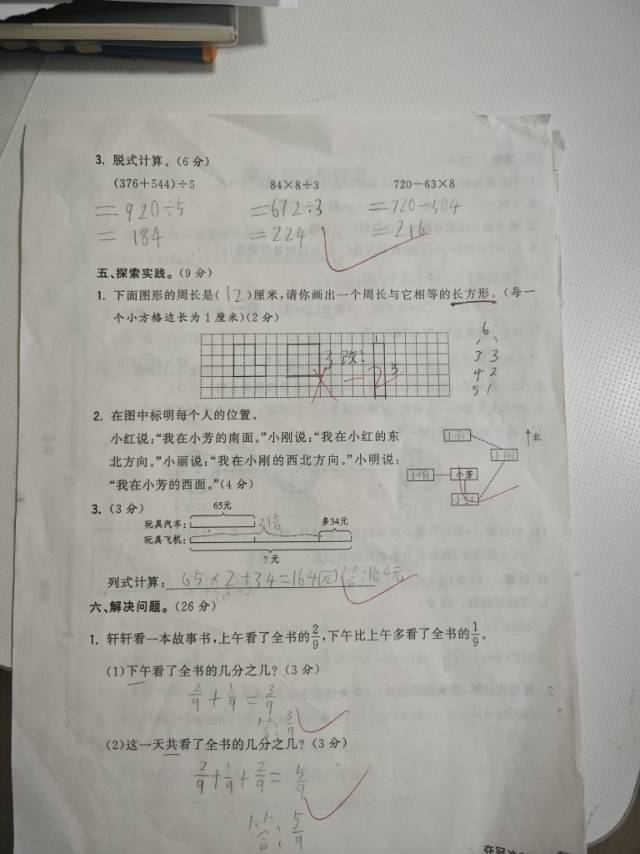 3. 脱式计算。(6分)
(376+544)÷5 84×8÷3 720-63×8
=920÷5 =672÷3 =720-504
=184 =224 =216
五、探索实践。(9分)
1. 下面图形的周长是(12)厘米,请你画出一个周长与它相等的长方形。(每一
个小方格边长为1厘米)(2分)
3 改: 1 5
-2
6
3 3
4 2
5 1
2. 在图中标明每个人的位置。
小红说:“我在小芳的南面。”小刚说:“我在小红的东
北方向。”小丽说:“我在小刚的西北方向。”小明说:
“我在小芳的西面。”(4分)
小丽
北
小刚
小明 小芳
小红
3. (3分)
65元
玩具汽车: 多34元
玩具飞机:
?元
列式计算: 65×2+34=164(元) 答:164元
六、解决问题。(26分)
1. 轩轩看一本故事书,上午看了全书的2/9,下午比上午多看了全书的1/9。
(1)下午看了全书的几分之几?(3分)
2/9+1/9=3/9
答:3/9
(2)这一天共看了全书的几分之几?(3分)
2/9+1/9+2/9=5/9
答:5/9